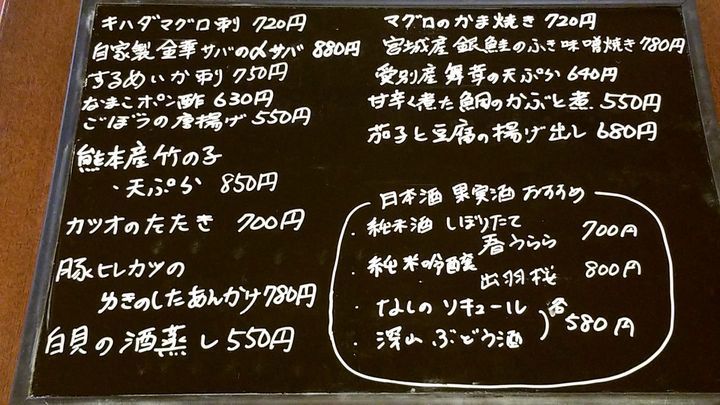 キハダマグロ刺 720円
自家製 金華サバの〆サバ 880円
するめいか刺 750円
なまこポン酢 630円
ごぼうの唐揚げ 550円
熊本産竹の子
・天ぷら 850円
カツオのたたき 700円
豚ヒレカツの
ゆきのしたあんかけ 780円
白貝の酒蒸し 550円
マグロのかま焼き 720円
宮城産 銀鮭のふき味噌焼き 780円
愛別産 舞茸の天ぷら 640円
甘辛く煮た鯛のかぶと煮 550円
茄子と豆腐の揚げ出し 680円
日本酒 果実酒 おすすめ
・純米酒 しぼりたて
春うらら 700円
・純米吟醸
出羽桜 800円
・なしのリキュール
・深山ぶどう酒
各580円